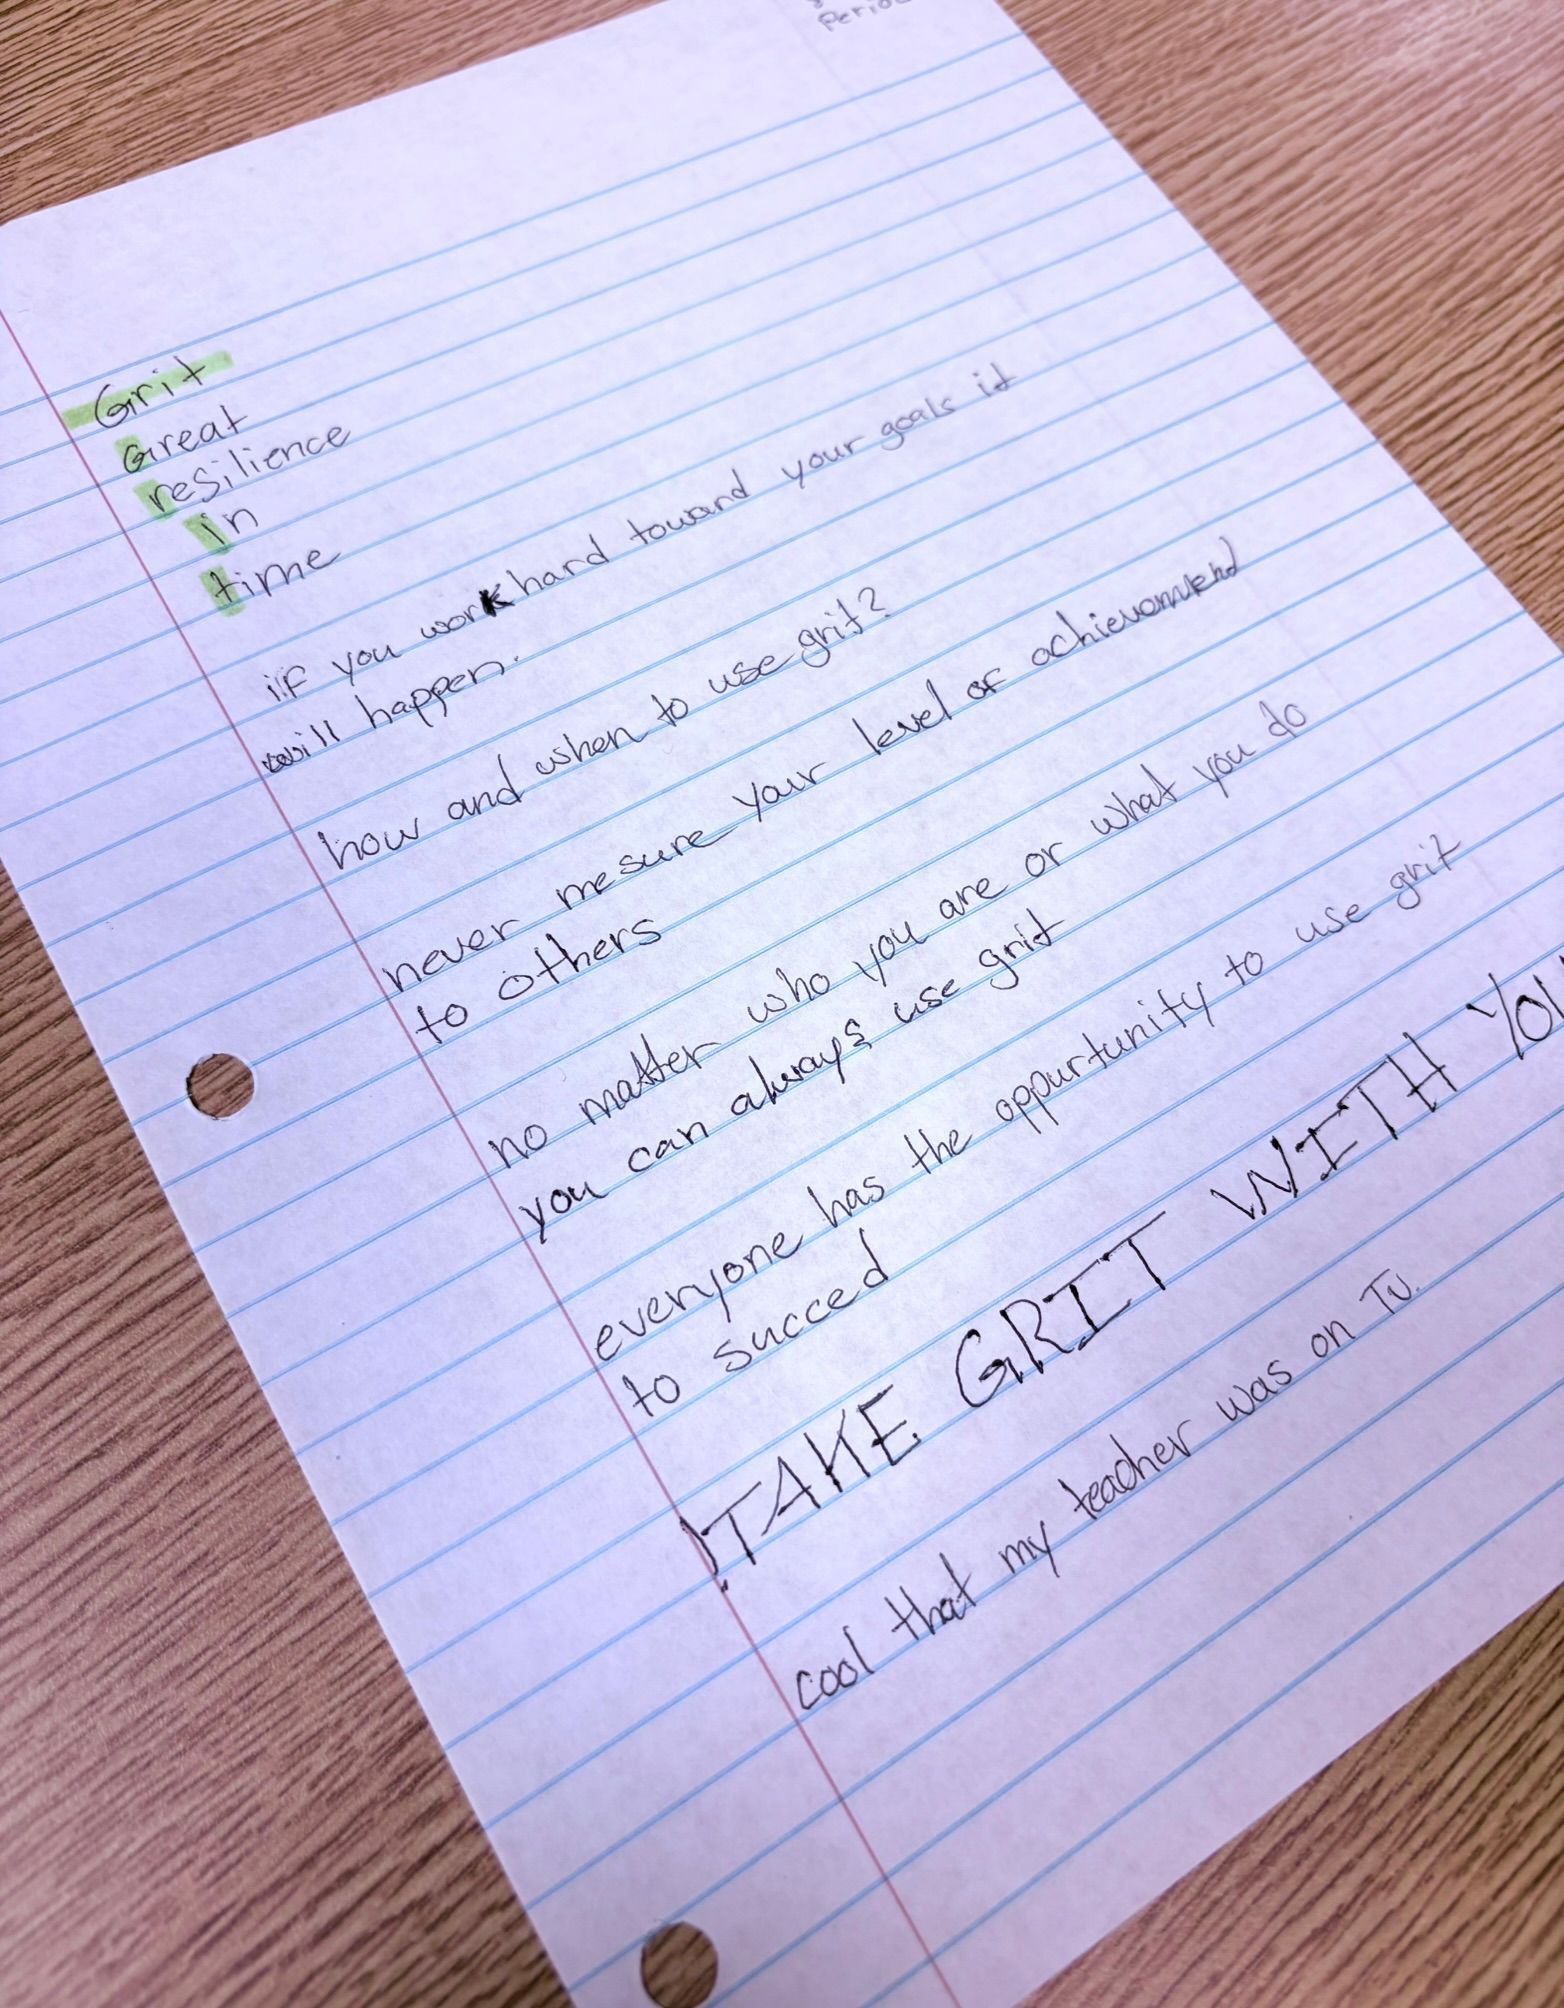 Period
Grit
Great
resilience
in
time
if you work hard toward your goals it
will happen.
how and when to use grit?
never mesure your level of achievomend
to others
no matter who you are or what you do
you can always use grit
everyone has the oppurtunity to use grit
to succed
!TAKE GRIT WITH YOU
cool that my teacher was on TV.